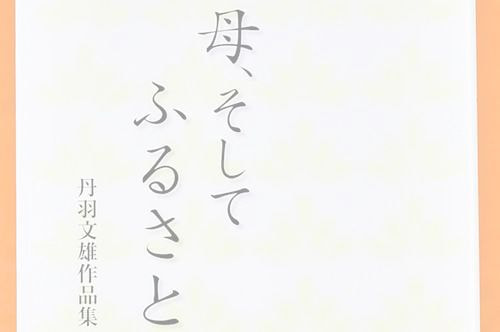 母、そして
ふるさと
丹羽文雄作品集